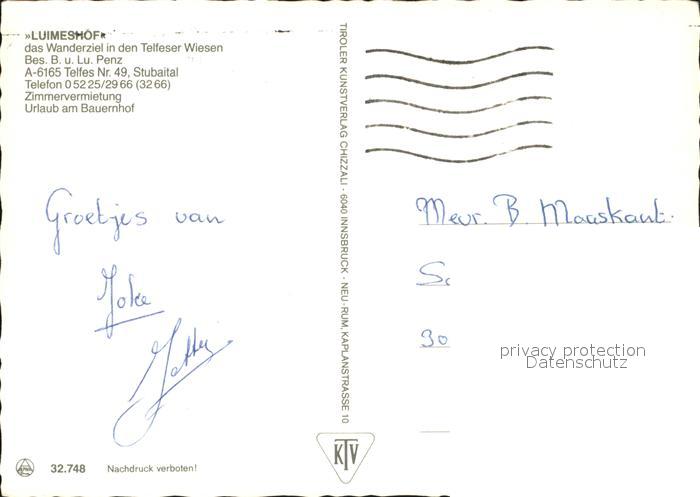 »LUIMESHOF«
das Wanderziel in den Telfeser Wiesen
Bes. B. u. Lu. Penz
A-6165 Telfes Nr. 49, Stubaital
Telefon 0 52 25/29 66 (32 66)
Zimmervermietung
Urlaub am Bauernhof
Groetjes van
Joke
TIROLER KUNSTVERLAG CHIZZALI · 6040 INNSBRUCK · NEU-RUM, KAPLANSTRASSE 10
Mevr. B. Maaskant.
30
privacy protection
Datenschutz
KTV
32.748 Nachdruck verboten!